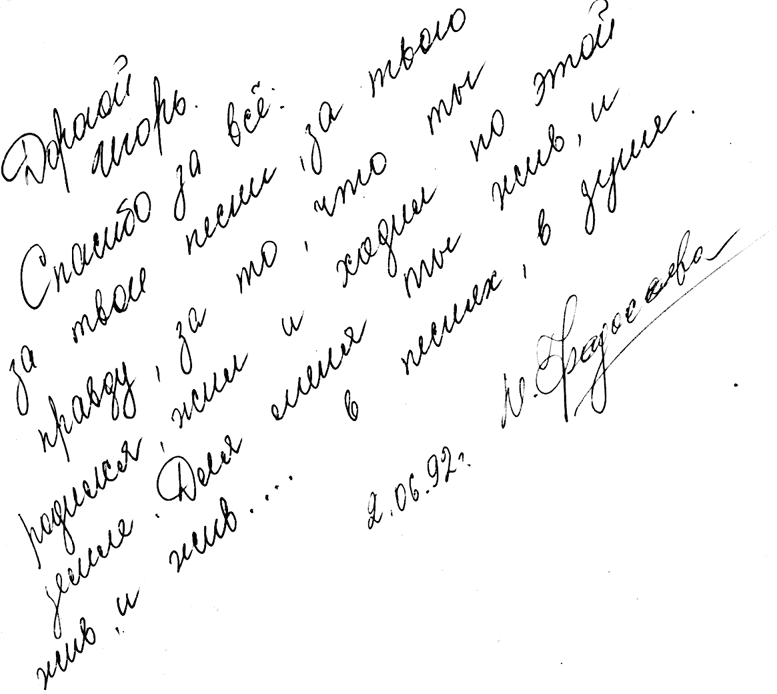 Дорогой
Игорь.
Спасибо за всё.
за твои песни, за твою
правду, за то, что ты
родился, жил и ходил по этой
земле. Для меня ты жив, и
жив, и жив.... в песнях, в душе.
2.06.92г.